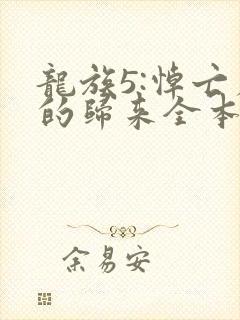 龍族5:悼亡
的歸来全本
余易安